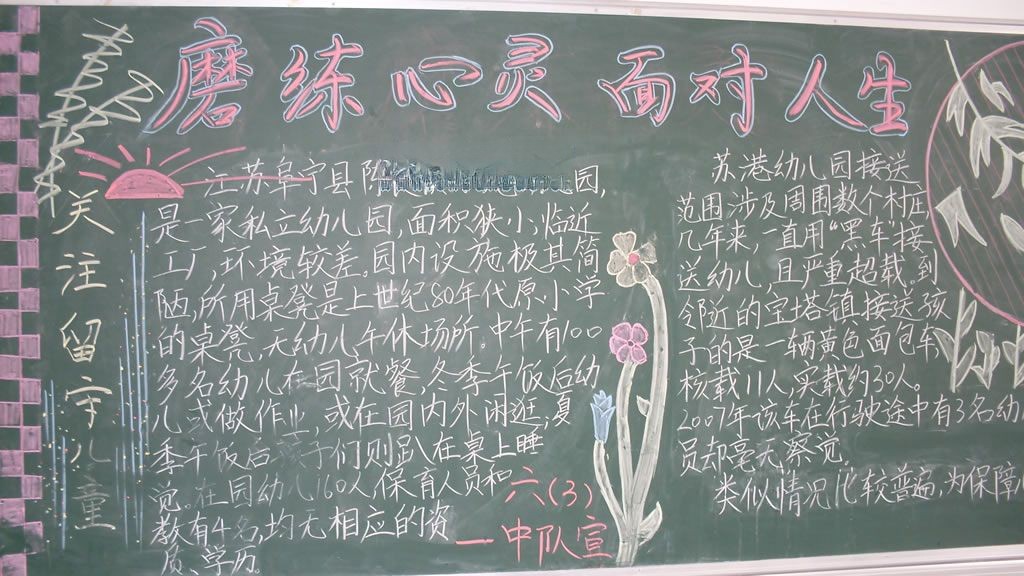 磨练心灵 面对人生
关注留守儿童
江苏阜宁县陈 园,
是一家私立幼儿园,面积狭小,临近
工厂,环境较差。园内设施极其简
陋,所用桌凳是上世纪80年代原小学
的桌凳,无幼儿午休场所,中午有100
多名幼儿在园就餐,冬季午饭后幼
儿或做作业,或在园内外闲逛,夏
季午饭后孩子们则趴在桌上睡
觉。在园幼儿160人,保育人员和
教有4名,均无相应的资
质、学历。
六(3)
一中队宣
苏港幼儿园接送
范围涉及周围数个村庄
几年来,一直用“黑车”接
送幼儿,且严重超载。到
邻近的宝塔镇接送孩
子的是一辆黄色面包车
核载11人,实载约30人。
2007年该车在行驶途中有3名幼
员却毫无察觉
类似情况比较普遍,为保障